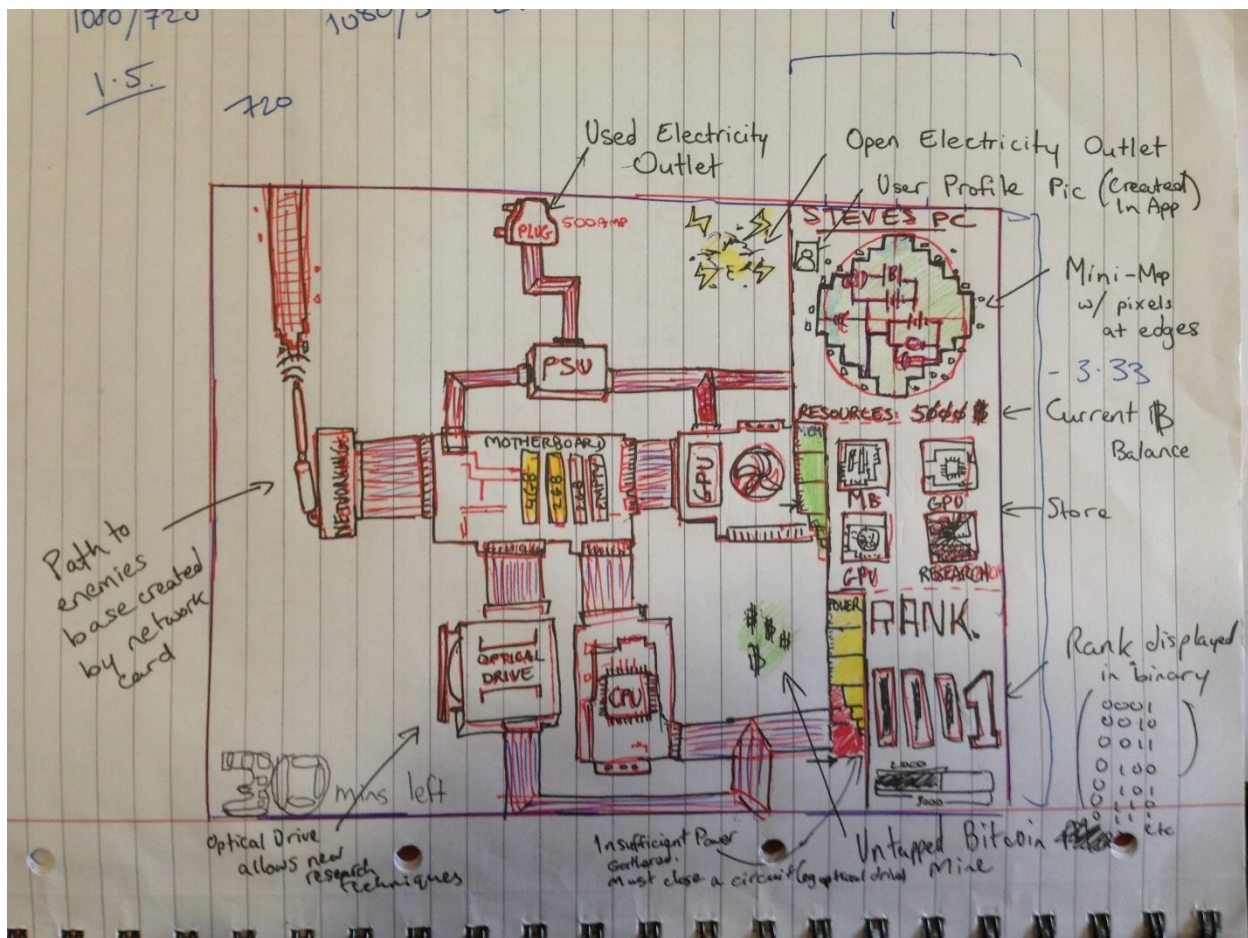 1080/720
1080/
1.5.
720
Used Electricity
Outlet
Open Electricity Outlet
User Profile Pic (Created
In App)
PLUG
500AMP
STEVES PC
Mini-Map
w/ pixels
at edges
- 3.33
PSU
RESOURCES: 5000 $
Current ₿
Balance
MOTHERBOARD
NETWORKING
4GB
2GB
2GB
EMPTY
GPU
MEM
MB
GPU
Store
GPU
RESEARCH
Path to
enemies
base created
by network
card
POWER
RANK.
OPTICAL
DRIVE
CPU
Rank displayed
in binary
0001
0010
0011
0100
0101
0110
etc
0001
2000
3000
30 mins left
Optical Drive
allows new
research
techniques
Insufficient Power
Gathered.
Must close a circuit (eg optical drive)
Untapped Bitcoin
Mine